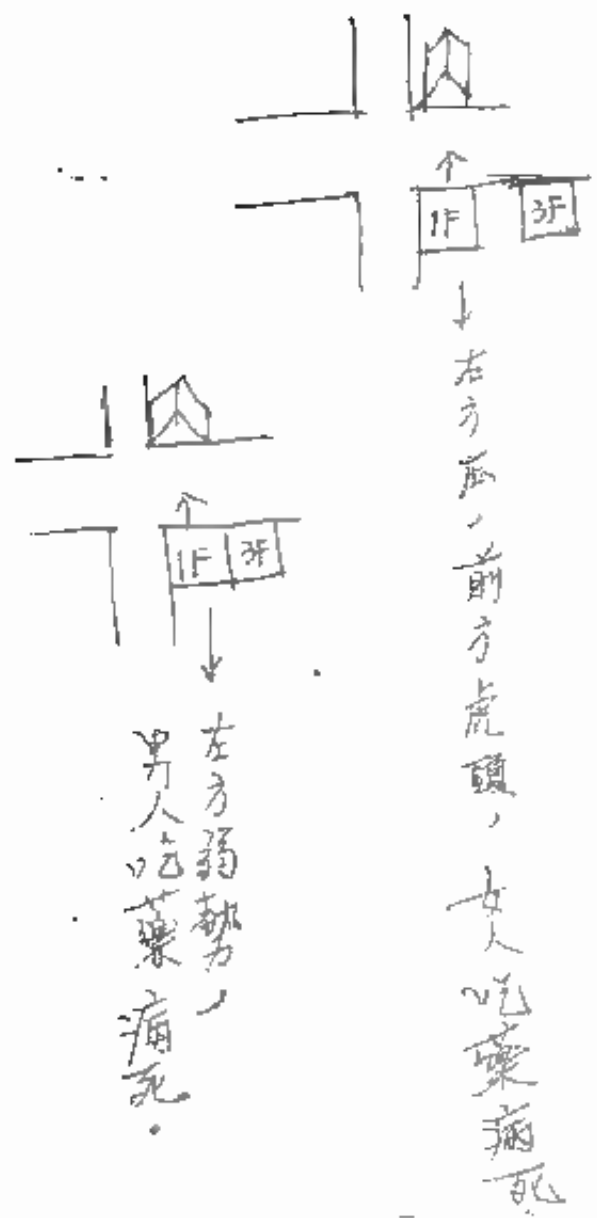 1F 3F
右方孤，前方虎頭，女人吃藥病死
1F 3F
左方弱勢，
男人吃藥病死。